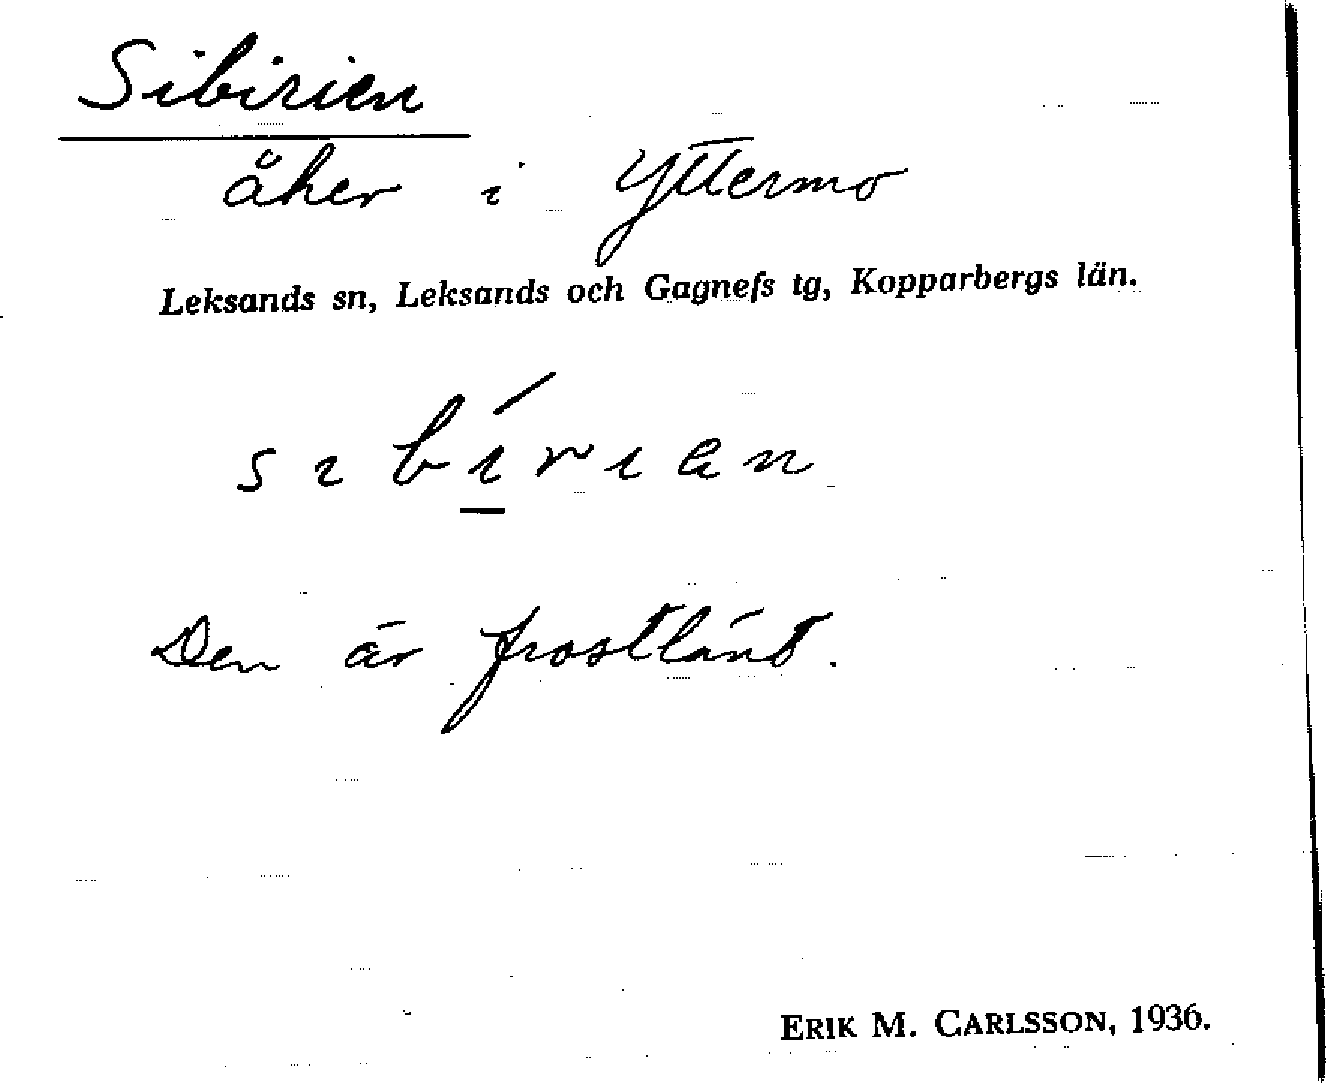 Sibirien
åker i Yttermo
Leksands sn, Leksands och Gagnefs tg, Kopparbergs län.
s ı b í r ı a n
Den är frostlänt.
ERIK M. CARLSSON, 1936.